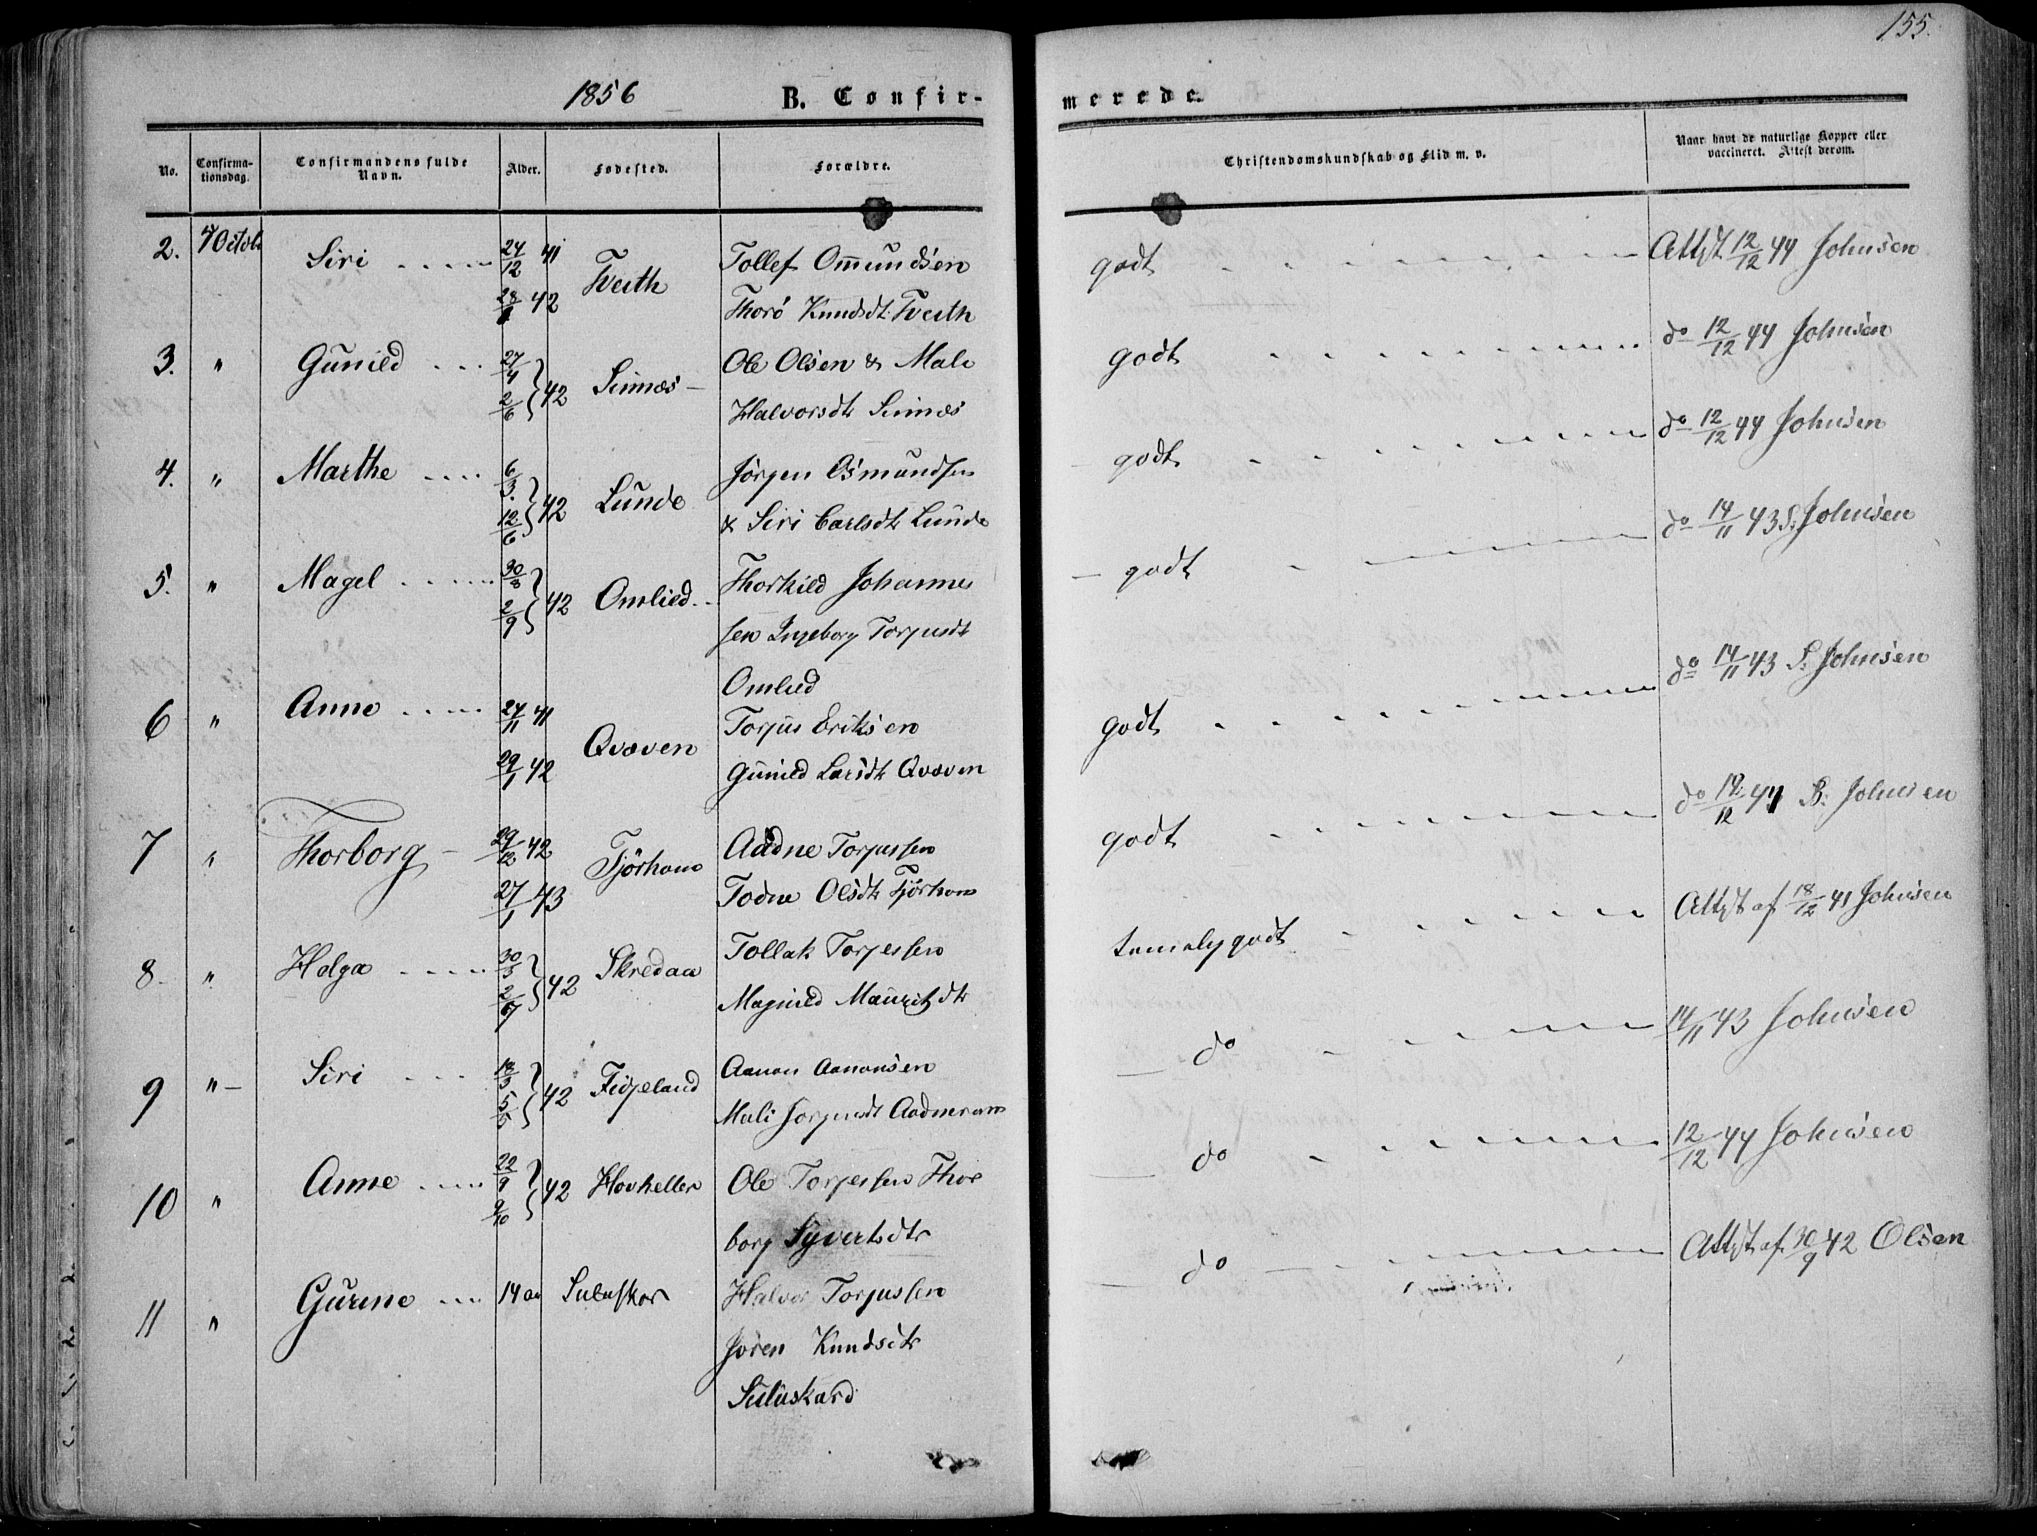 155.
1856 B. Confir- merede.
No. Confirma-tionsdag. Confirmandens fulde Navn. Alder. Fødested. Forældre. Christendomskundskab og Flid m. v. Naar havt de naturlige Kopper eller vaccineret. Attest derom.
2. 7 Octobr Siri 24/12 41 Tveith Tollef Omundsen godt Attst 12/12 44 Johnsen
28/1 42 Thorø Knudsdt Tveith
3. " Gunild 27/4 2/6 42 Sinnæs Ole Olsen & Mali godt do 12/12 44 Johnsen
Halvorsdt Sinnæs
4. " Marthe 6/3 12/6 42 Lunde Jørgen Osmundsen godt do 12/12 44 Johnsen
& Siri Carlsdt Lunde
5. " Magel 30/8 2/9 42 Omlied Thorkild Johanne godt do 14/11 43 S. Johnsen
sen Ingeborg Torjusdt
Omlied
6 " Anne 24/11 41 Qvæven Torjus Eriksen godt do 14/11 43 S. Johnsen
29/1 42 Gunild Larsdt Qvæven
7 " Thorborg 29/12 42 Tjørhom Aadne Torjussen godt do 12/12 44 S. Johnsen
27/1 43 Todne Olsdt Tjørhom
8 " Helga 30/5 2/7 42 Skredaa Tollak Torjessen temelig godt Attst af 18/12 41 Johnsen
Magnild Mauritzdt
9 " Siri 18/3 5/5 42 Fidjeland Aanon Aanonsen do 14/11 43 Johnsen
Mali Jorgensdt
10 " Anne 22/9 9/10 42 Hovheller Ole Torjessen Thor do 12/12 44 Johnsen
borg Syvertsdtr
11 " Gurine 14 aa Suluskar Halvor Torjussen do Attst af 30/9 42 Olsen
Joren Knudsdtr
Suluskard